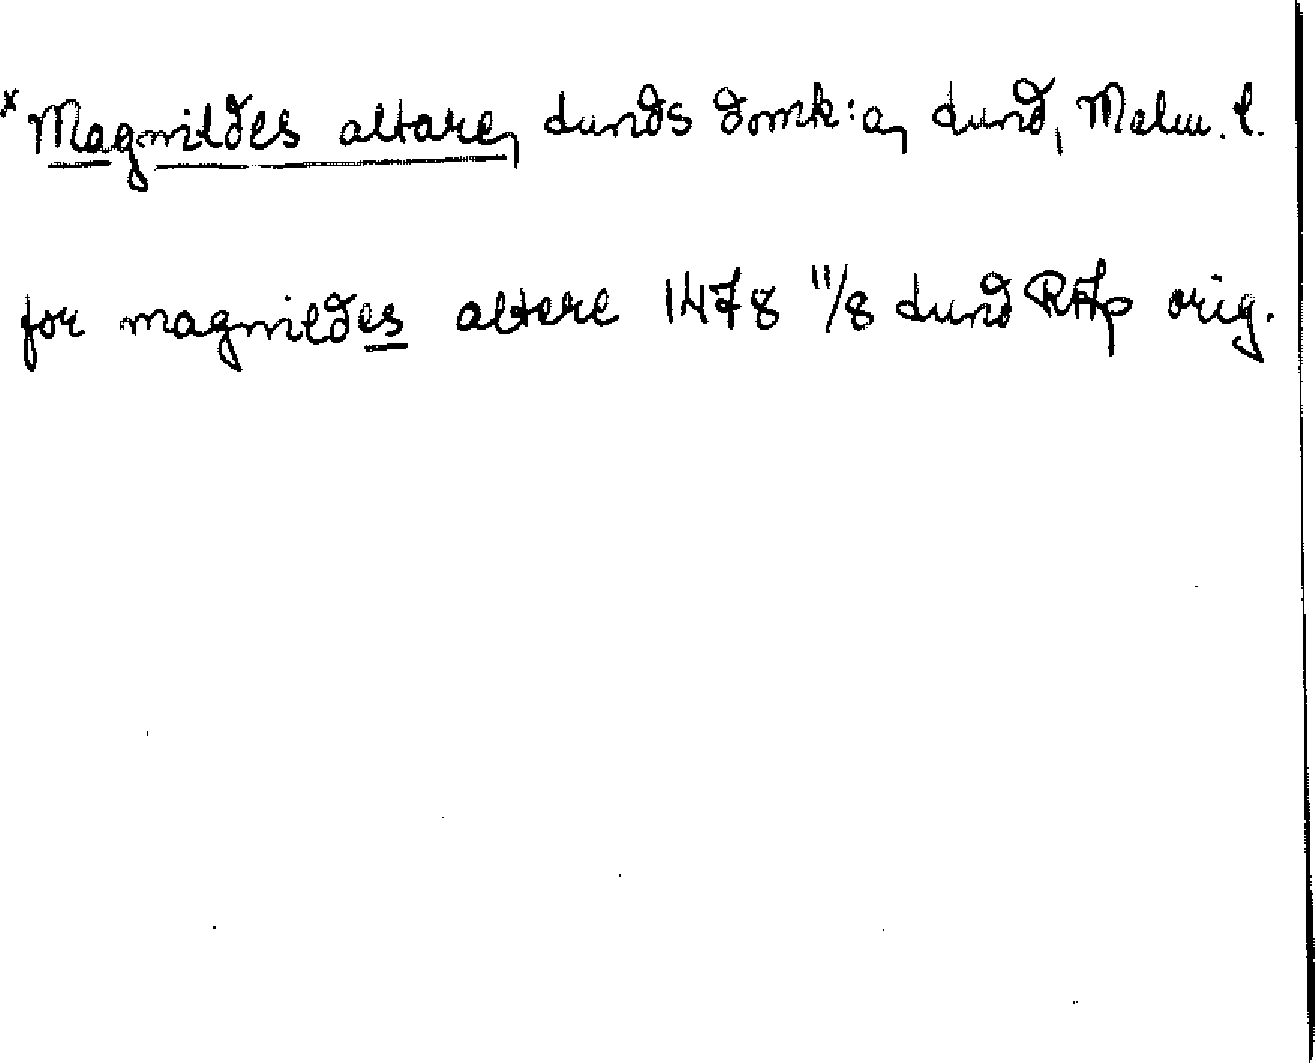 * Magnildes altare, Lunds domk:a, Lund, Malm. l.
for magnildes altere 1478 11/8 Lund RAp orig.